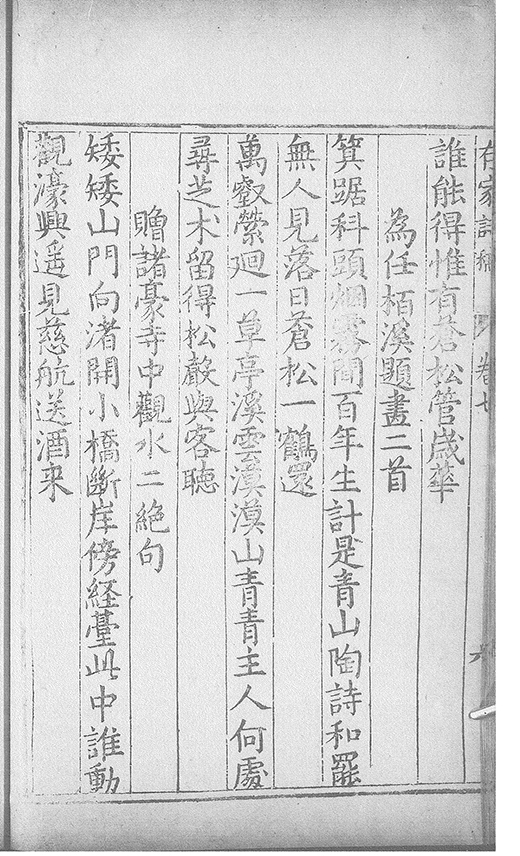 有家詩稿 卷七 六
誰能得惟有蒼松管歲華
為任栢溪題畫二首
箕踞科頭烟霧間百年生計是青山陶詩和罷
無人見落日蒼松一鶴還
萬壑縈廻一草亭溪雲漠漠山青青主人何處
尋芝术留得松聲與客聽
贈諸豪寺中觀水二絕句
矮矮山門向渚開小橋斷岸傍経臺此中誰動
觀濠興遥見慈航送酒来